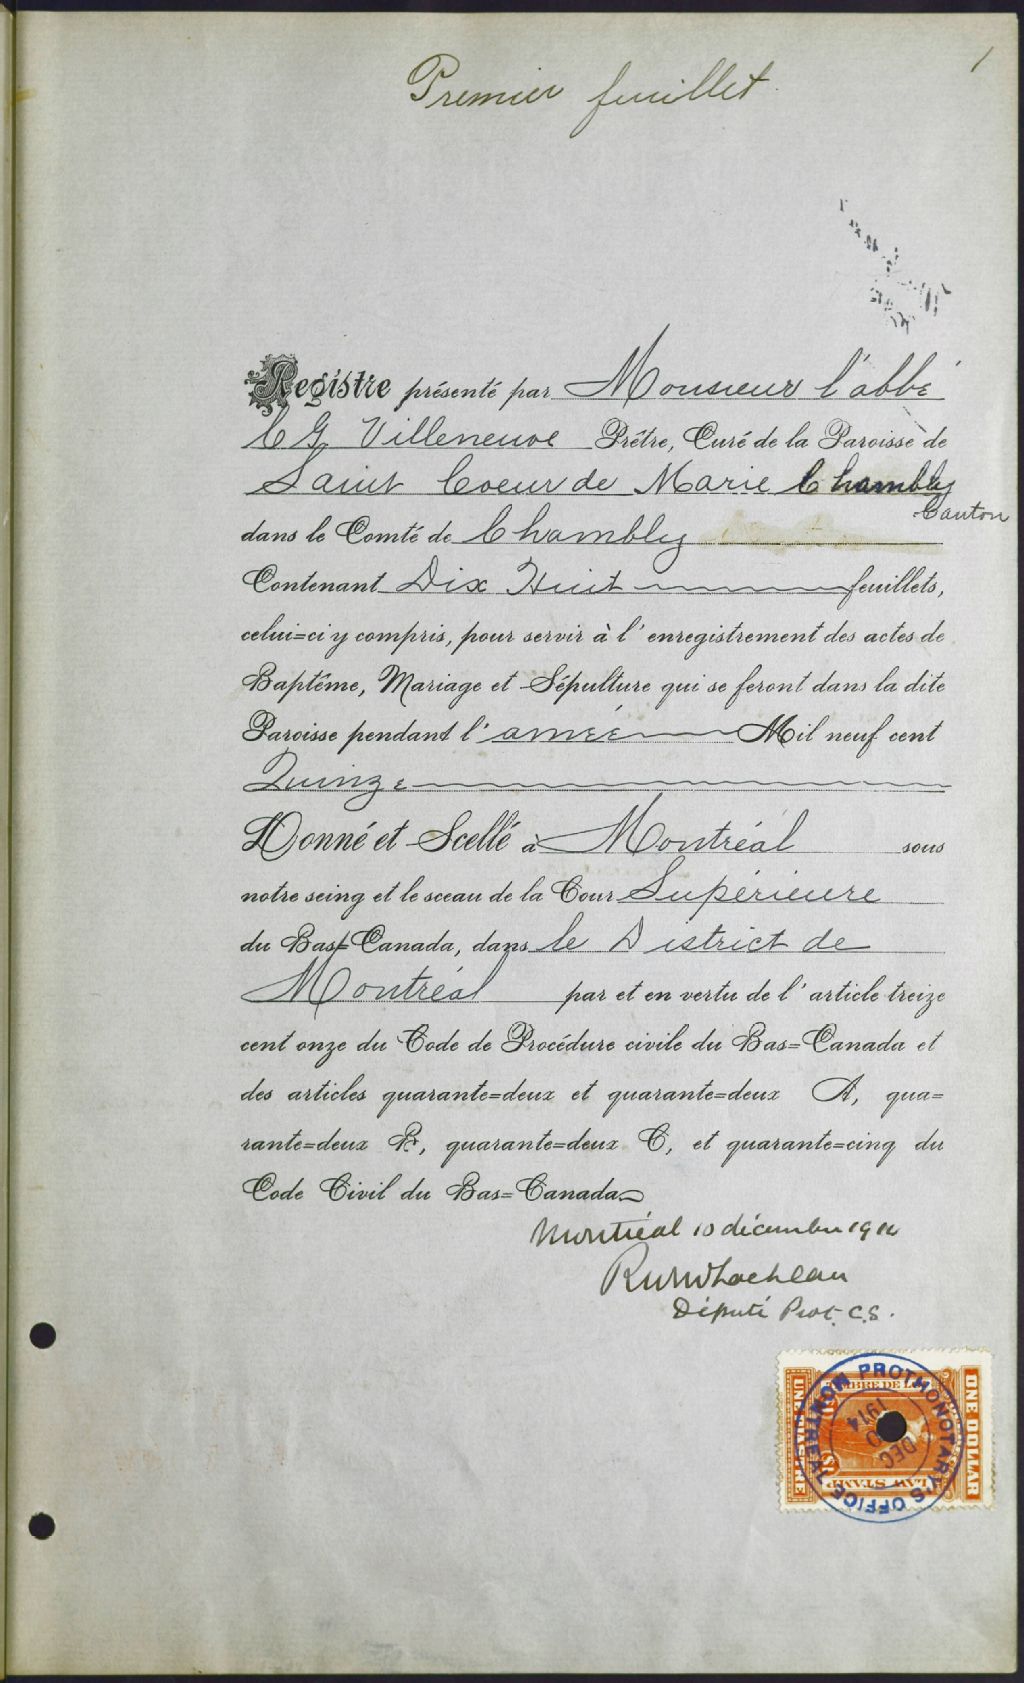 1
Premier feuillet
Registre présenté par Monsieur l'abbé
C G Villeneuve Prêtre, Curé de la Paroisse de
Saint Coeur de Marie Chambly
Canton
dans le Comté de Chambly
Contenant Dix Huit feuillets,
celui=ci y compris, pour servir à l'enregistrement des actes de
Baptême, Mariage et Sépulture qui se feront dans la dite
Paroisse pendant l'année Mil neuf cent
Quinze
Donné et Scellé à Montréal sous
notre seing et le sceau de la Cour Supérieure
du Bas=Canada, dans le District de
Montréal par et en vertu de l'article treize
cent onze du Code de Procédure civile du Bas=Canada et
des articles quarante=deux et quarante=deux A, qua=
rante=deux B, quarante=deux C, et quarante=cinq du
Code Civil du Bas=Canada
Montréal 10 décembre 1914
Député Prot. C.S.
PROTHONOTARY'S OFFICE MONTREAL
DEC
1914
ONE DOLLAR
LAW STAMP